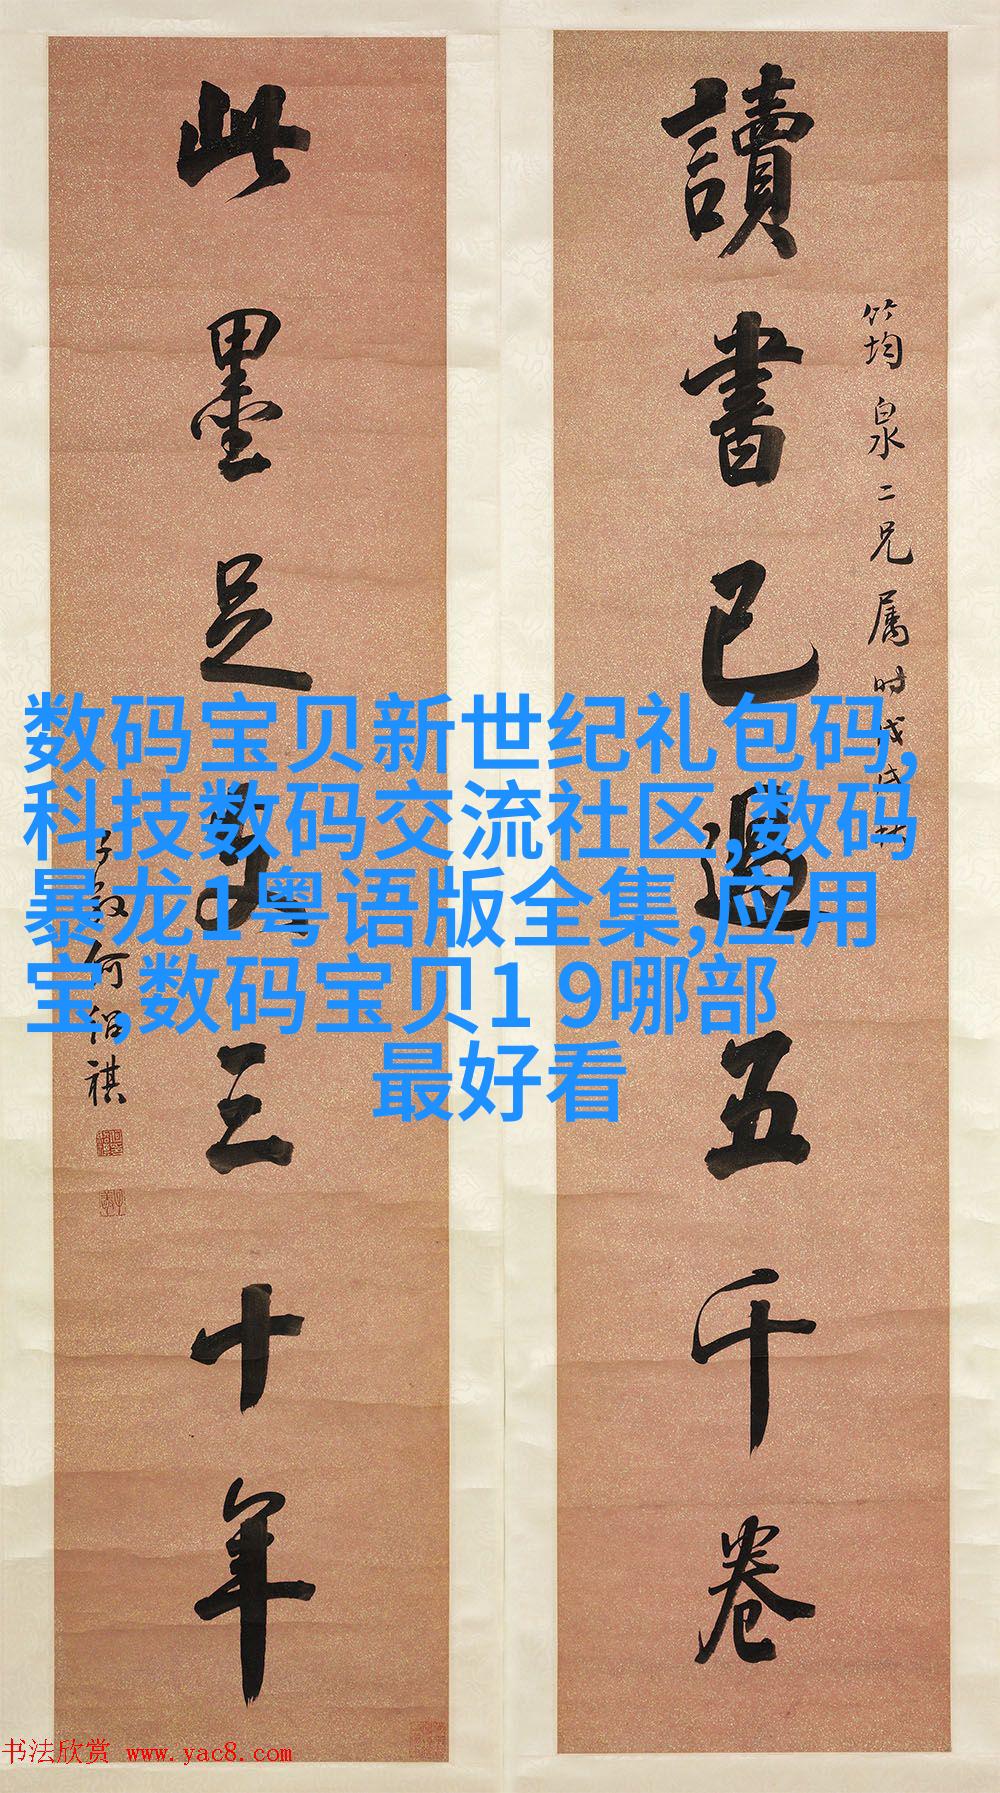 讀書已過五千卷
筠泉二兄属时戊戌
此墨足支三十年
子毅何绍祺
数码宝贝新世纪礼包码,
科技数码交流社区,数码
暴龙1粤语版全集,应用
宝,数码宝贝1 9哪部
最好看
书法欣赏 www.yac8.com